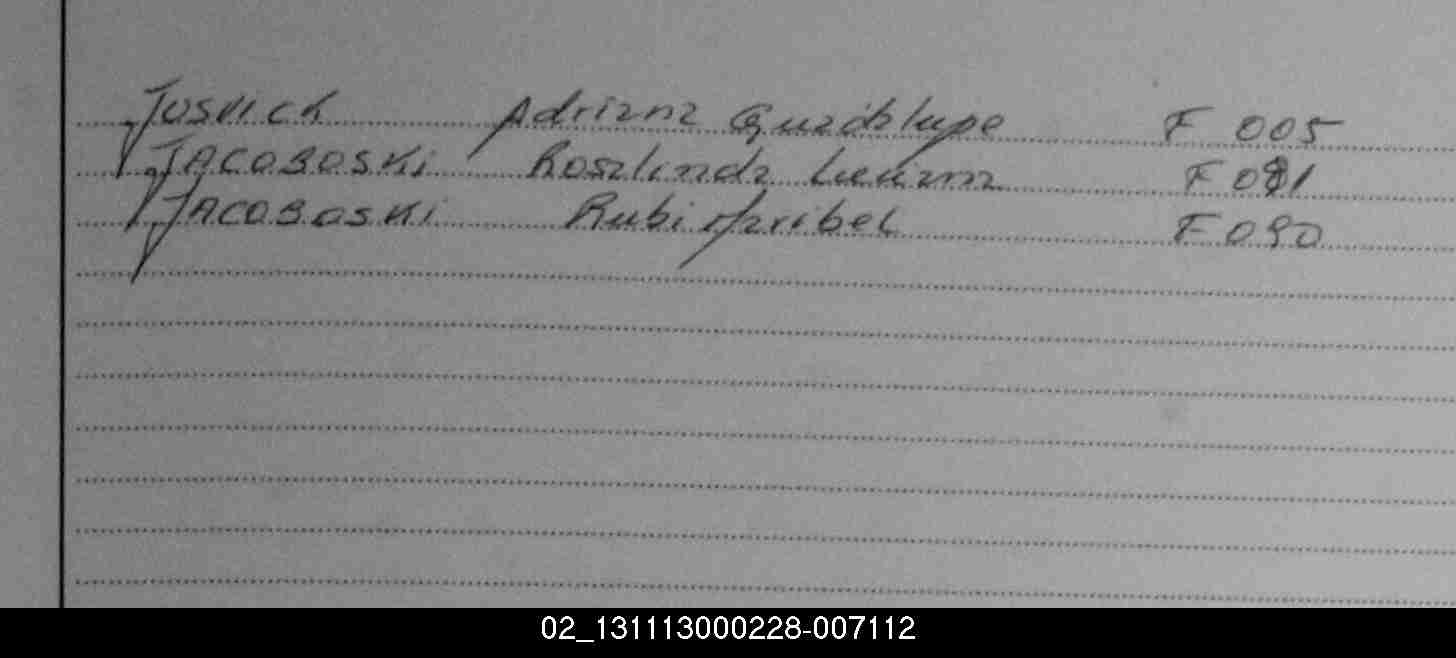 JUSVICK Adriana Guadalupe F 005
JACOBOSKI Rosalinda Luciana F 091
JACOBOSKI Rubi Maribel F 090
02_131113000228-007112